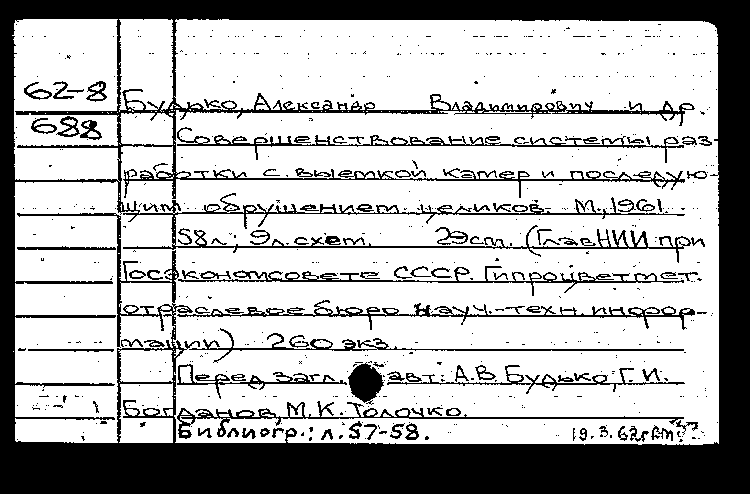 62-8
688
Будько, Александр Владимирович и др.
Совершенствование системы раз-
работки с выемкой камер и последую-
щим обрушением целиков. М., 1961.
58л.; 9л.схем. 29см. (ГлавНИИ при
Госэкономсовете СССР. Гипроцветмет.
отраслевое бюро науч.-техн. инфор-
мации) 260 экз.
Перед загл. авт: А.В. Будько, Г.И.
Богданов, М.К. Толочко.
Библиогр.: л.57-58.
19.3.62г